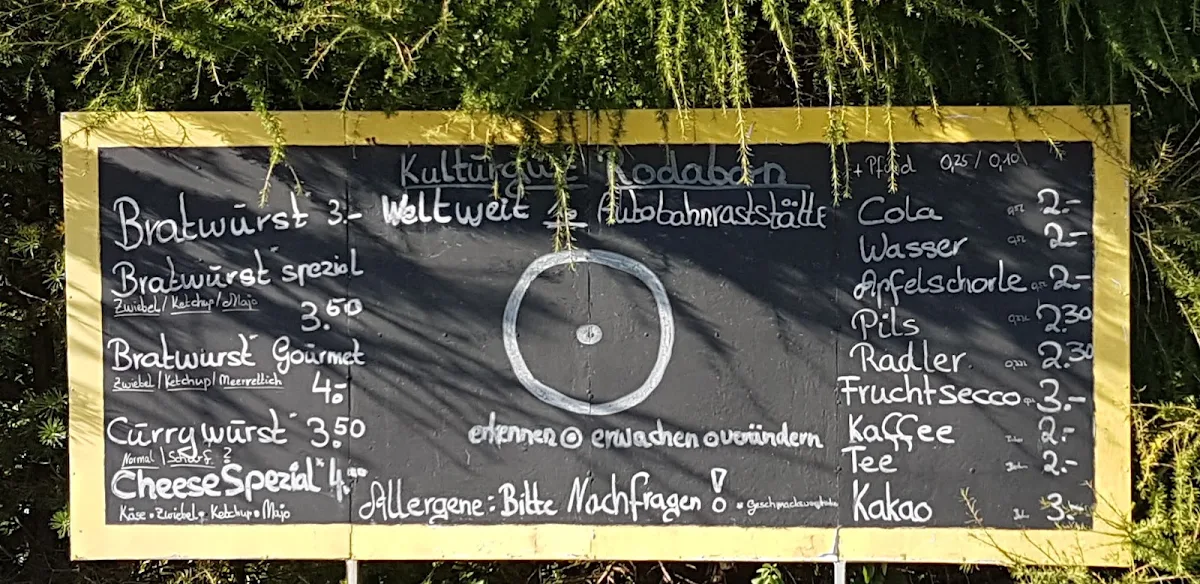 Kulturgut Rodaborn
Weltweit 1. Autobahnraststätte
Bratwurst 3.-
Bratwurst spezial
Zwiebel / Ketchup / Majo
3.50
Bratwurst Gourmet
Zwiebel / Ketchup / Meerrettich
4.-
Currywurst 3.50
Normal / Scharf ?
Cheese Spezial 4.
Käse • Zwiebel • Ketchup • Majo
erkennen erwachen verändern
Allergene: Bitte Nachfragen!
+ Pfand 0,25 / 0,10
Cola 2.-
Wasser 2.-
Apfelschorle 2.-
Pils 2.30
Radler 2.30
Fruchtsecco 3.-
Kaffee 2.-
Tee 2.-
Kakao 3.